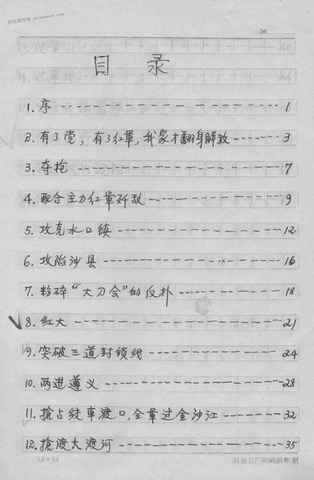 目 录
1. 序 1
2. 有了党，有了红军，我家才翻身解放 3
3. 夺枪 7
4. 配合主力红军歼敌 9
5. 攻克水口镇 12
6. 攻陷沙县 16
7. 粉碎“大刀会”的反扑 18
8. 红大 21
9. 突破三道封锁线 24
10. 两进遵义 28
11. 抢占绞車渡口，全軍过金沙江 32
12. 抢渡大渡河 35